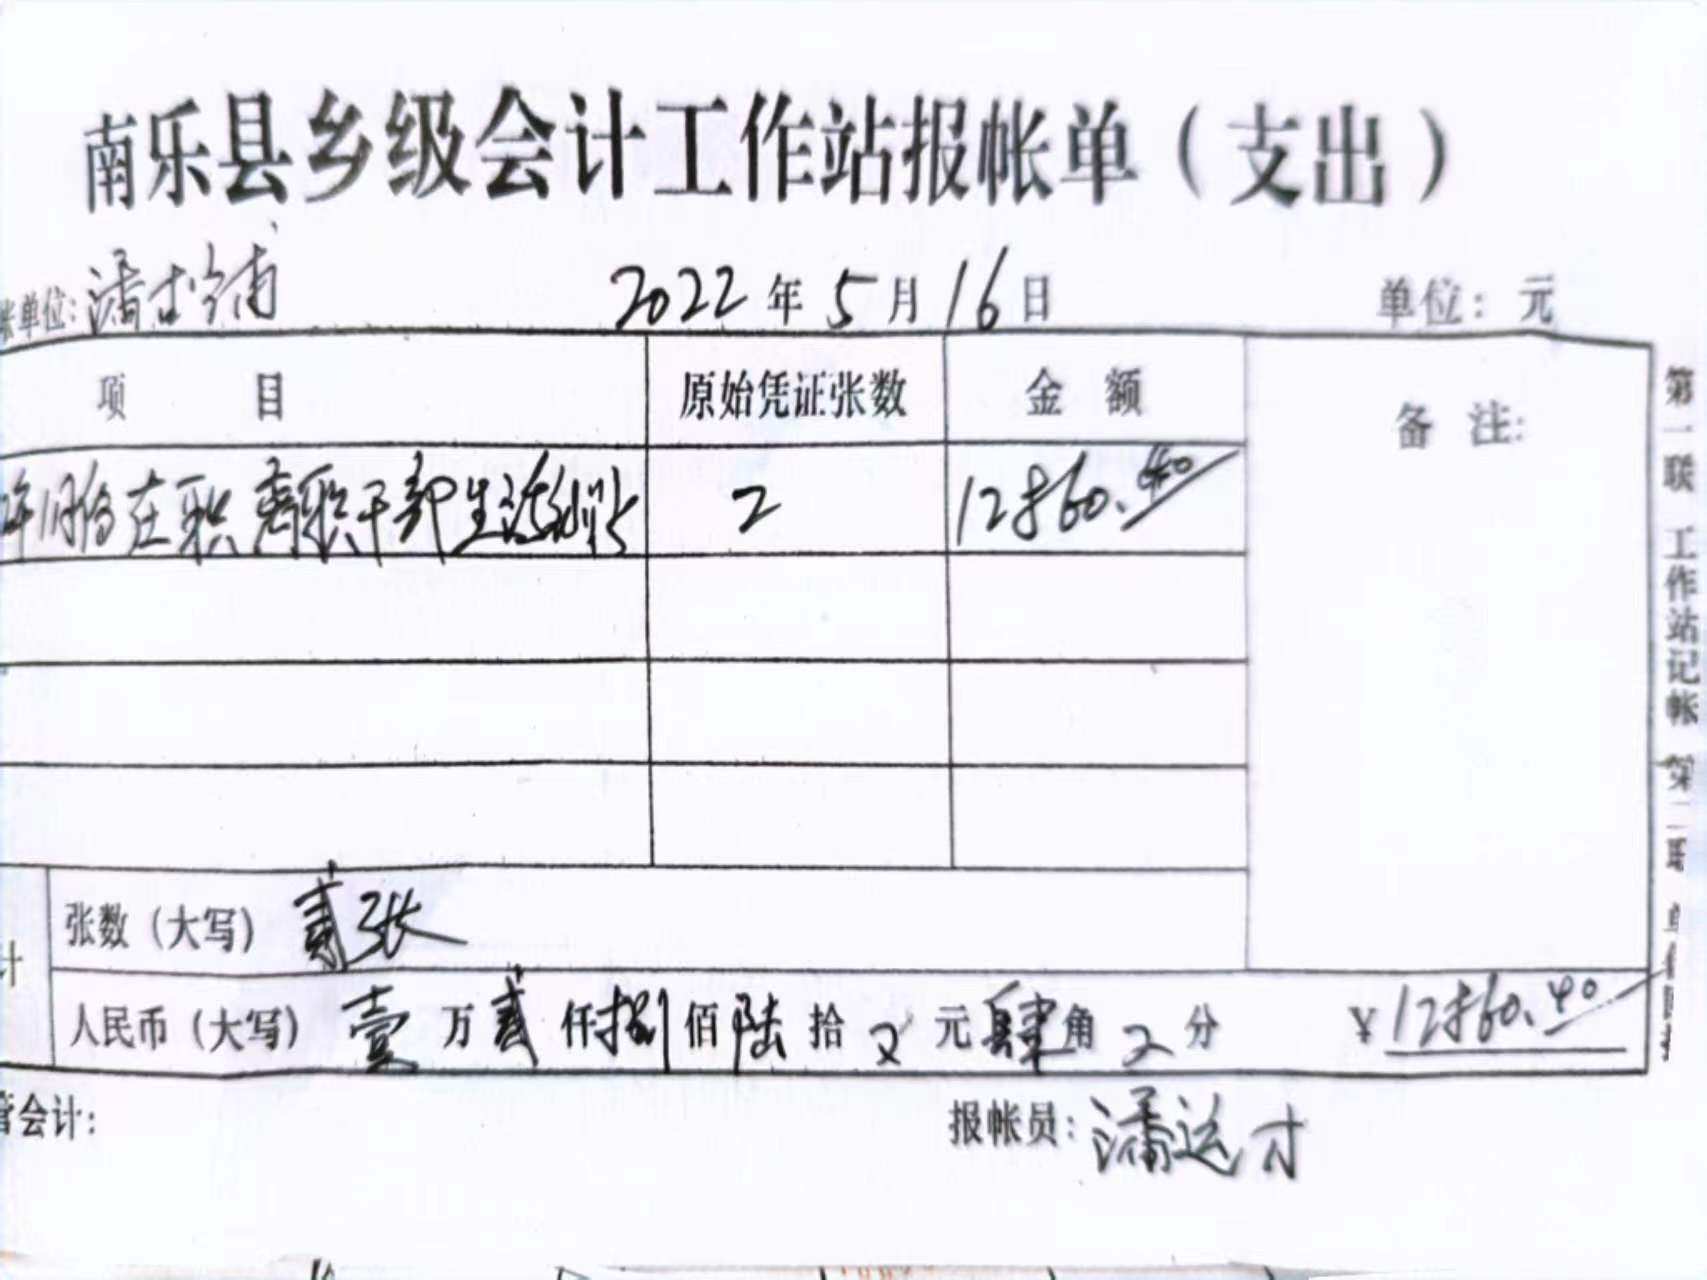 南乐县乡级会计工作站报帐单（支出）
帐单位: 潘 2022年5月16日 单位：元
项 目 原始凭证张数 金 额 备 注:
年1月份在职离职干部生活补贴 2 12860.40
张数（大写） 贰张
计
人民币（大写） 壹万贰仟捌佰陆拾 元肆角 分 ￥12860.40
管会计: 报帐员: 潘运才
第一联 工作站记帐 第二联 单